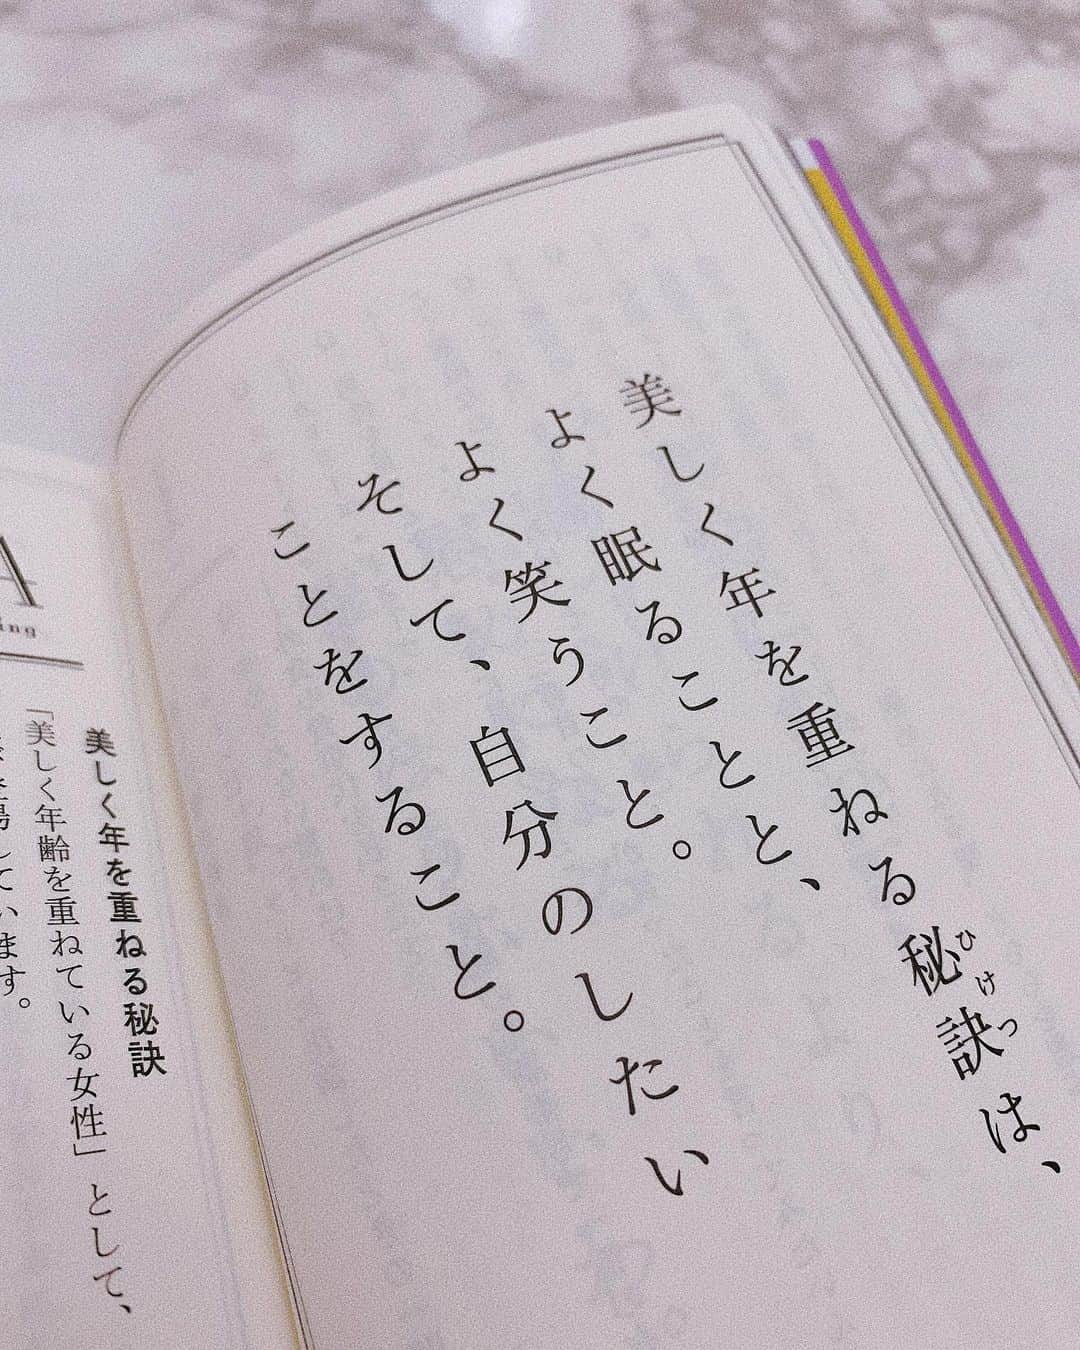 美しく年を重ねる秘訣は、
ひけつ
よく眠ることと、
よく笑うこと。
そして、自分のしたい
ことをすること。
A
ing
美しく年を重ねる秘訣
「美しく年齢を重ねている女性」として、
登場しています。